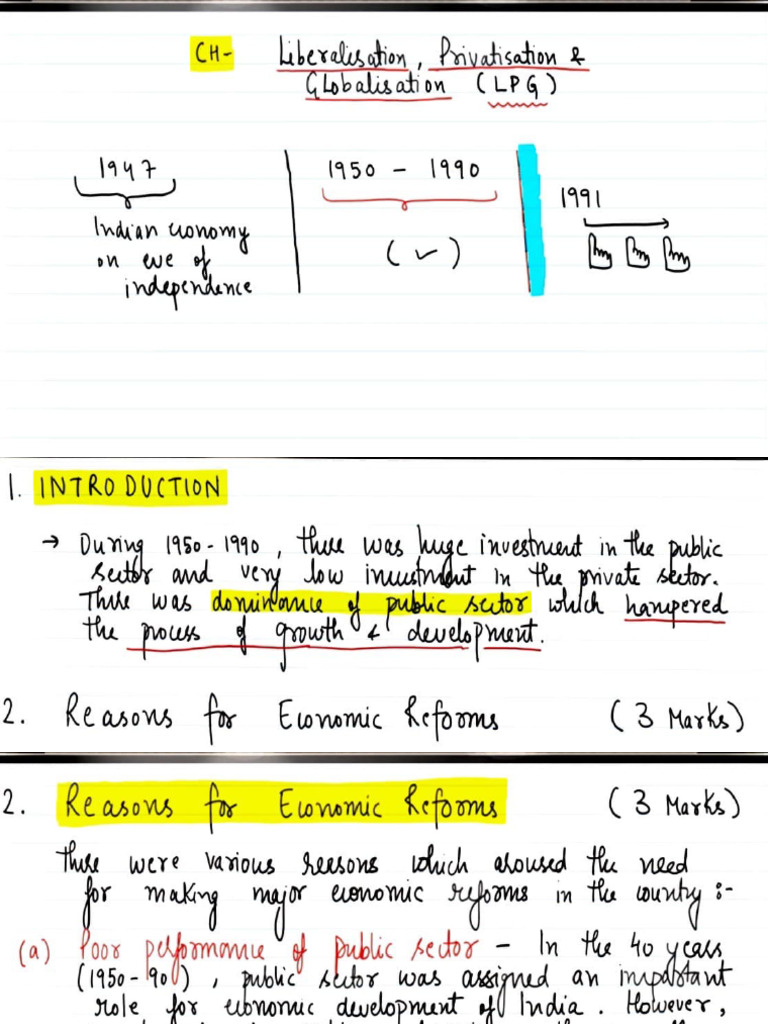 CH- Liberalisation, Privatisation &
Globalisation (LPG)
1947
Indian economy
on eve of
independence
1950 - 1990
(✓)
1991
1. INTRODUCTION
→ During 1950-1990, there was huge investment in the public
sector and very low investment in the private sector.
There was dominance of public sector which hampered
the process of growth & development.
2. Reasons for Economic Reforms (3 Marks)
2. Reasons for Economic Reforms (3 Marks)
There were various reasons which aroused the need
for making major economic reforms in the country :-
(a) Poor performance of public sector - In the 40 years
(1950-90), public sector was assigned an important
role for economic development of India. However,